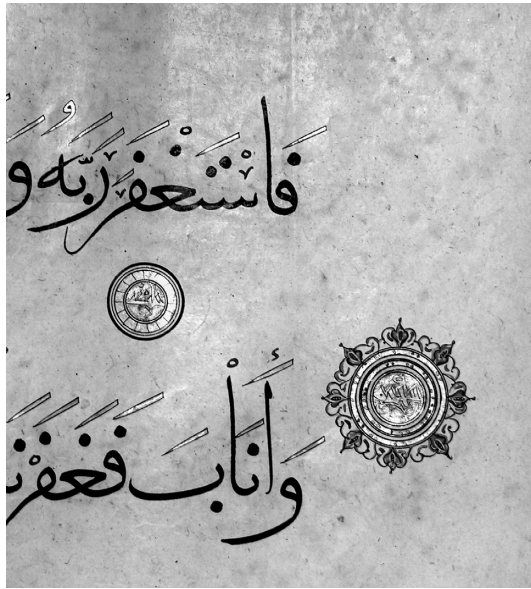 فَاسْتَغْفَرَ رَبَّهُ وَ
وَأَنَابَ فَغَفَرْنَ